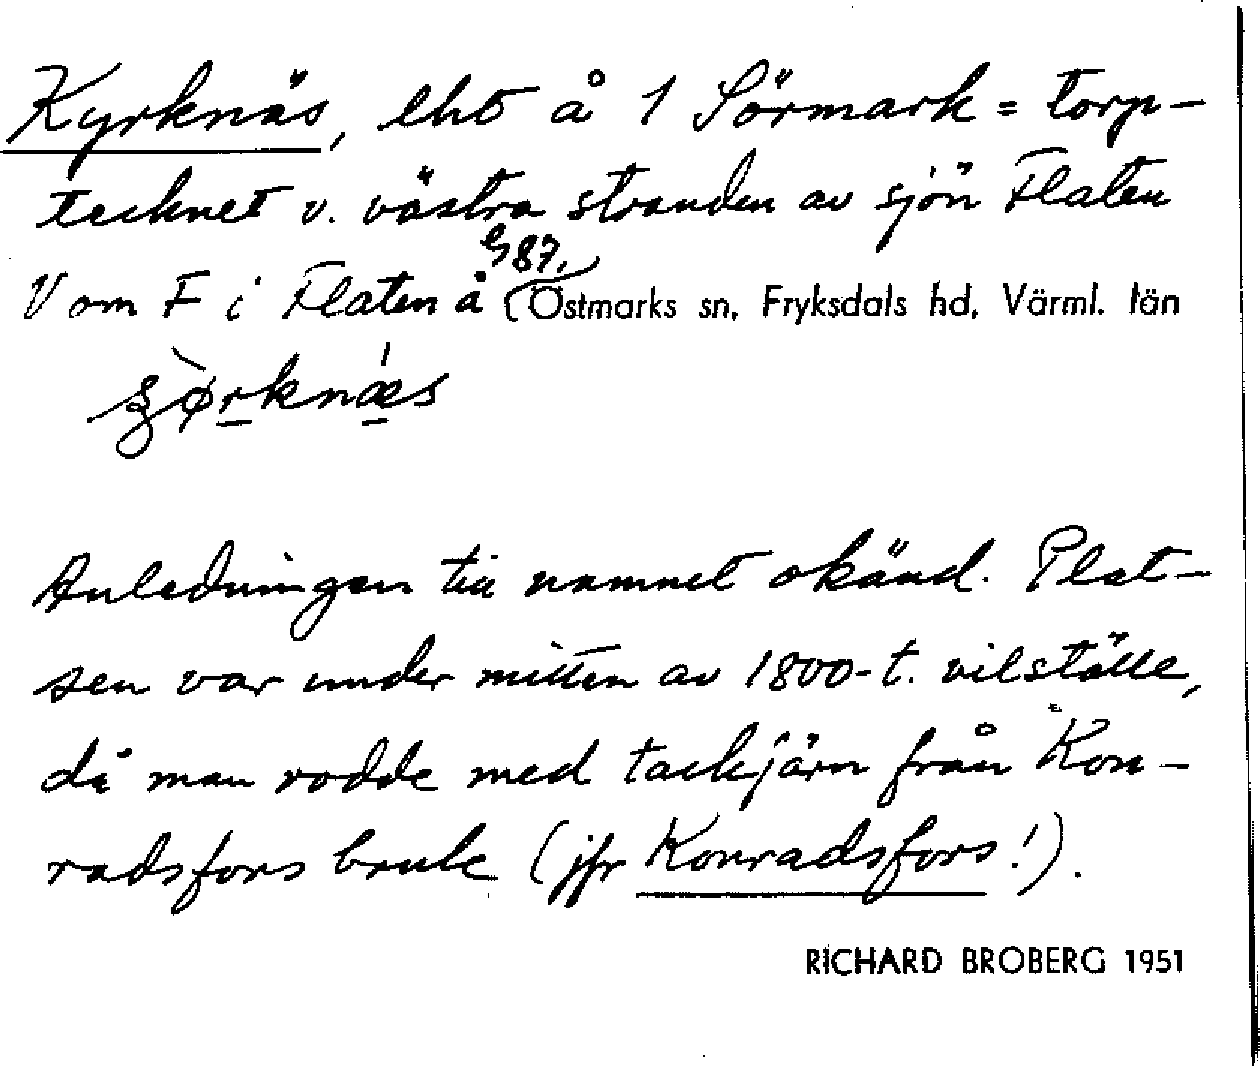 Kyrknäs, lht å 1 Sörmark = torp-
tecknet v. västra stranden av sjön Flaten
V om F i Flaten å G87. Östmarks sn, Fryksdals hd, Värml. län
Anledningen till namnet okänd. Plat-
sen var under mitten av 1800-t. vilställe,
då man rodde med tackjärn från Kon-
radsfors bruk (jfr Konradsfors!).
RICHARD BROBERG 1951